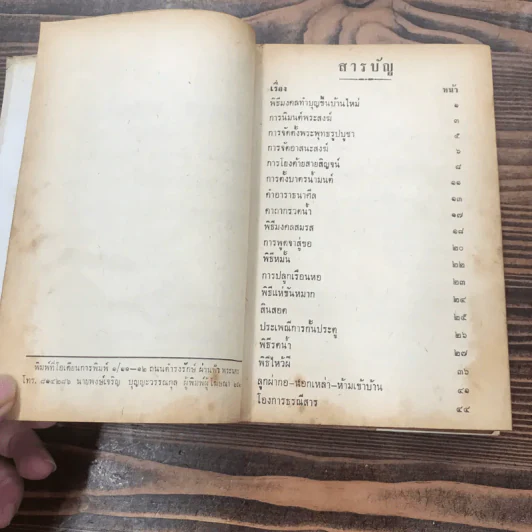 พิมพ์ที่โอเดียนการพิมพ์ ๑/๑๑—๑๒ ถนนดำรงรักษ์ ผ่านฟ้า พระนคร
โทร. ๘๑๔๒๘๖ นายพงษ์เจริญ บุญญะวรรณกุล ผู้พิมพ์ผู้โฆษณา
สารบัญ
เรื่อง หน้า
พิธีมงคลทำบุญขึ้นบ้านใหม่ ๑
การนิมนต์พระสงฆ์ ๓
การจัดตั้งพระพุทธรูปบูชา ๕
การจัดอาสนะสงฆ์ ๖
การโยงด้ายสายสิญจน์ ๙
การตั้งบาตรน้ำมนต์ ๑๑
คำอาราธนาศีล ๑๓
คาถากรวดน้ำ ๑๗
พิธีมงคลสมรส ๑๘
การพูดจาสู่ขอ ๒๐
พิธีหมั้น ๒๒
การปลูกเรือนหอ ๒๓
พิธีแห่ขันหมาก ๒๔
สินสอด ๒๕
ประเพณีการกั้นประตู ๒๖
พิธีรดน้ำ ๒๗
พิธีไหว้ผี ๓๖
ลูกฝาก-นอกเหล่า-ห้ามเข้าบ้าน ๔๑
โองการธรณีสาร ๔๔